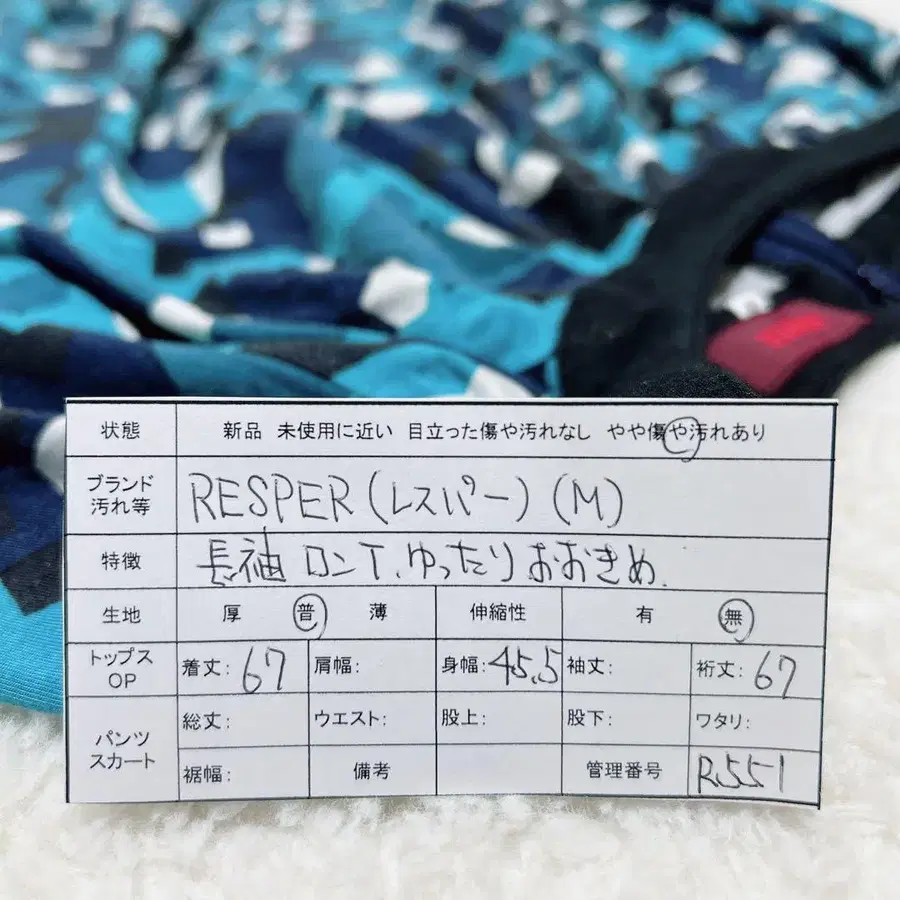 状態 新品 未使用に近い 目立った傷や汚れなし やや傷や汚れあり
ブランド 汚れ等 RESPER(レスパー)(M)
特徴 長袖 ロンT、ゆったり おおきめ.
生地 厚 普 薄 伸縮性 有 無
トップス OP 着丈: 67 肩幅: 身幅: 45.5 袖丈: 裄丈: 67
パンツ スカート 総丈: ウエスト: 股上: 股下: ワタリ:
裾幅: 備考 管理番号 R.551